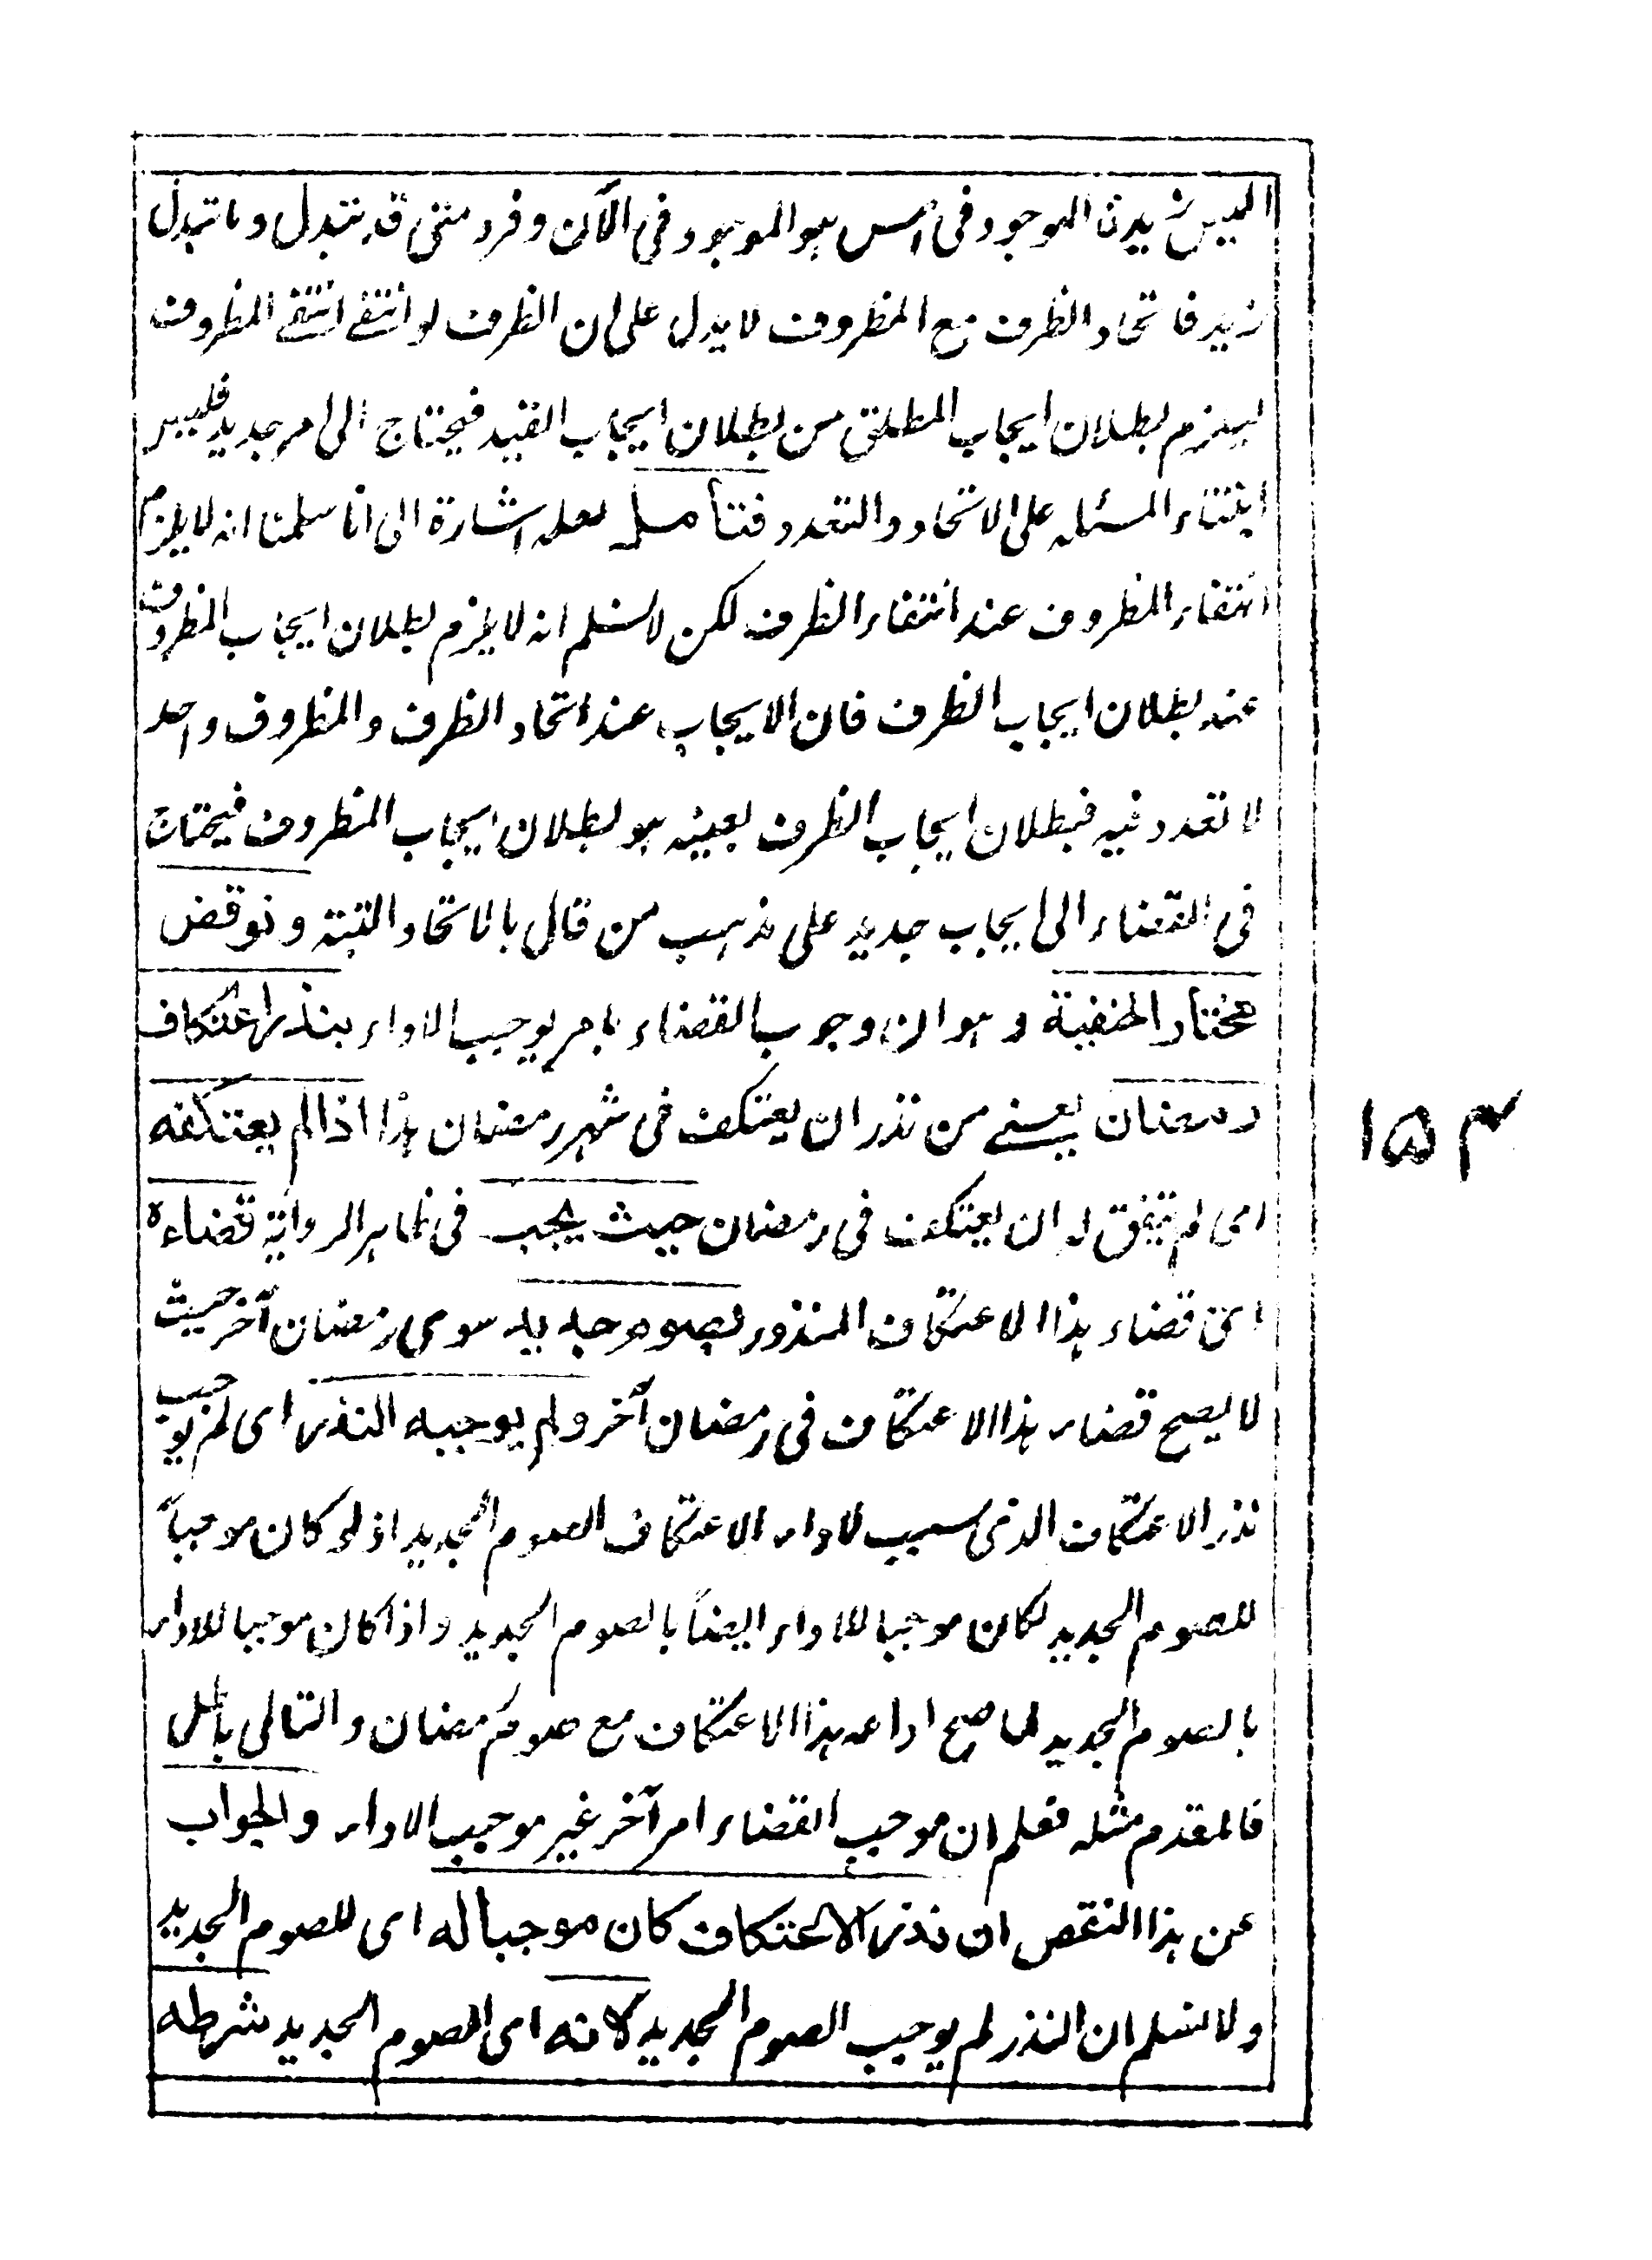 اليس زيدن الموجود فى امس هو الموجود فى الآن وفرد متى قد يتبدل وما تبدل
زيد فاتحاد الظرف مع المظروف لا يدل على ان الظرف لو انتفے انتفے المظروف
ليلزم بطلان ايجاب المطلق من بطلان ايجاب القيد فيحتاج الى امر جديد فليس
ابتناء المسئلة على الاتحاد والتعدد فتأمل لعله اشارة الى انا سلمنا انه لا يلزم
انتفاء المظروف عند انتفاء الظرف لكن لا نسلم انه لا يلزم بطلان ايجاب المظروف
عند بطلان ايجاب الظرف فان الايجاب عند اتحاد الظرف والمظروف واحد
لا تعدد فيه فبطلان ايجاب الظرف بعينه هو بطلان ايجاب المظروف فيحتاج
فى القضاء الى ايجاب جديد على مذهب من قال بالاتحاد البتة ونوقض
مختار الحنفية وهو ان وجوب القضاء بامر يوجب الاداء بنذر اعتكاف
رمضان يعنے من نذر ان يعتكف فى شهر رمضان هذا اذا لم يعتكفه
اى لم يتفق له ان يعتكف فى رمضان حيث يجب فى ظاهر الرواية قضاءه
اى قضاء هذا الاعتكاف المنذور بصوم جديد سوى رمضان آخر حيث
لا يصح قضاء هذا الاعتكاف فى رمضان آخر ولم يوجبه النذر اى لم يوجب
نذر الاعتكاف الذى سبب لاداء الاعتكاف الصوم الجديد اذ لو كان موجباً
للصوم الجديد لكان موجبا للاداء ايضاً بالصوم الجديد واذا كان موجبا للاداء
بالصوم الجديد لما صح اداءه هذا الاعتكاف مع صوم رمضان والتالى باطل
فالمقدم مثله فعلم ان موجب القضاء امر آخر غير موجب الاداء والجواب
عن هذا النقض ان نذر الاعتكاف كان موجبا له اى للصوم الجديد
ولا نسلم ان النذر لم يوجب الصوم الجديد لانه اى الصوم الجديد شرطه
۱۵۴